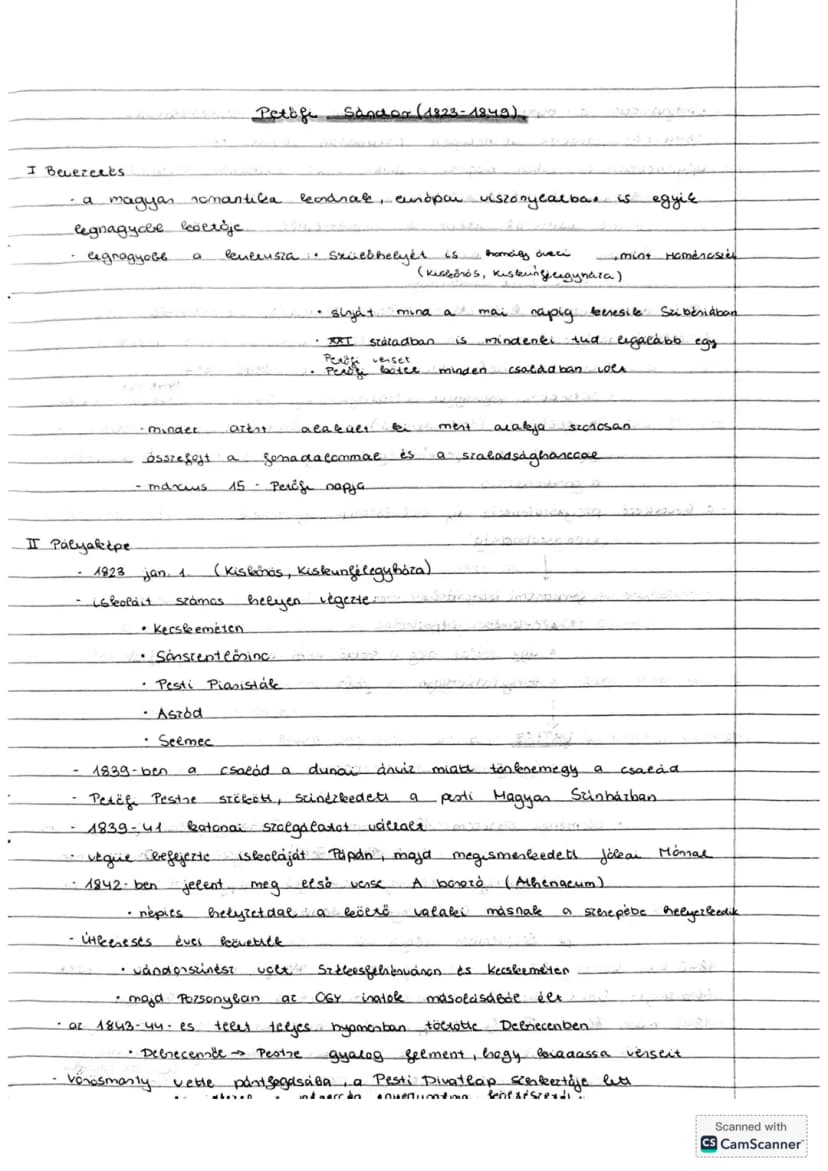 Petőfi Sándor (1823-1849)
I Bevezetés
- a magyar romantika korának, európai viszonylatban is egyik
legnagyobb költője
- legnagyobb a kultusza : • Szülőhelyét is homály övezi , mint Homérosét
(Kiskőrös, Kiskunfélegyháza)
• sírját mind a mai napig keresik Szibériában
• XXI században is mindenki tud legalább egy
Petőfi verset
• Petőfi kötet minden családban volt
- mindez azért alakult ki mert alakja szorosan
összefojt a forradalommal és a szabadságharccal
- március 15 - Petőfi napja
II Pályaképe
- 1823 jan. 1. (Kiskőrös, Kiskunfélegyháza)
- iskoláit számos helyen végezte
• Kecskeméten
• Sárszentlőrinc
• Pesti Piaristák
• Aszód
• Selmec
- 1839-ben a család a dunai árvíz miatt tönkremegy a család
- Petőfi Pestre szökött, színészkedett a pesti Magyar Színházban
- 1839-41 katonai szolgálatot vállalt
- végül befejezte iskoláját Pápán, majd megismerkedett Jókai Mórral
- 1842-ben jelent meg első verse A borozó (Athenaeum)
• népies helyzetdal : a költő valaki másnak a szerepébe helyezkedik
- Útkeresés évei következtek
• vándorszínész volt Székesfehérváron és Kecskeméten
• majd Pozsonyban az OGY iratok másolásából élt
- az 1843-44-es telet teljes nyomorban töltötte Debrecenben
• Debrecenből → Pestre gyalog felment, hogy kiadassa verseit
- Vörösmarty vette pártfogásába, a Pesti Divatlap szerkesztője lett
Scanned with
CS CamScanner